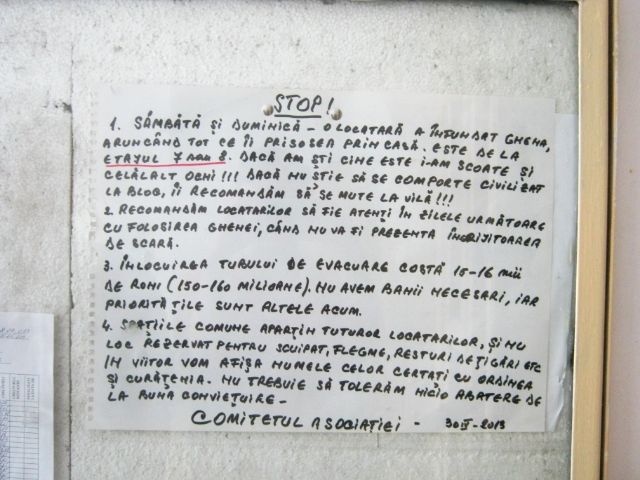 STOP!
1. SÂMBĂTĂ ȘI DUMINICĂ – O LOCATARĂ A ÎNFUNDAT GHENA,
ARUNCÂND TOT CE ÎI PRISOSEA PRIN CASĂ. ESTE DE LA
ETAJUL 7 SAU 8. DACĂ AM ȘTI CINE ESTE I-AM SCOATE ȘI
CELĂLALT OCHI!!! DACĂ NU ȘTIE SĂ SE COMPORTE CIVILIZAT
LA BLOC, ÎI RECOMANDĂM SĂ SE MUTE LA VILĂ!!!
2. RECOMANDĂM LOCATARILOR SĂ FIE ATENȚI ÎN ZILELE URMĂTOARE
CU FOLOSIREA GHENEI, CÂND NU VA FI PREZENTĂ ÎNGRIJITOAREA
DE SCARĂ.
3. ÎNLOCUIREA TUBULUI DE EVACUARE COSTĂ 15-16 mii
DE RONI (150-160 MILIOANE). NU AVEM BANII NECESARI, IAR
PRIORITĂȚILE SUNT ALTELE ACUM.
4. SPAȚIILE COMUNE APARȚIN TUTUROR LOCATARILOR, ȘI NU
LOC REZERVAT PENTRU SCUIPAT, FLEGME, RESTURI DE ȚIGĂRI ETC
IN VIITOR VOM AFIȘA NUMELE CELOR CERTAȚI CU ORDINEA
ȘI CURĂȚENIA. NU TREBUIE SĂ TOLERĂM NICIO ABATERE DE
LA BUNA CONVIEȚUIRE –
COMITETUL ASOCIAȚIEI - 2013